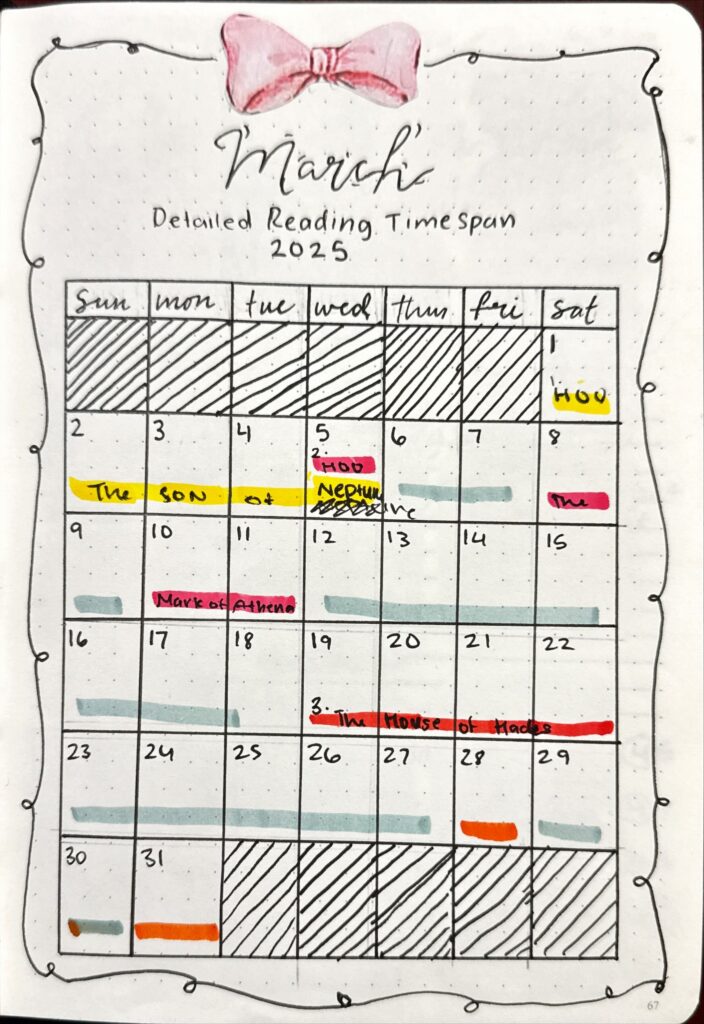 March
Detailed Reading Timespan
2025
Sun mon tue wed thur fri sat
1
1. HOO
2 3 4 5 6 7 8
2.
HOO
The SON of Neptune The
9 10 11 12 13 14 15
Mark of Athena
16 17 18 19 20 21 22
3. The House of Hades
23 24 25 26 27 28 29
30 31
67